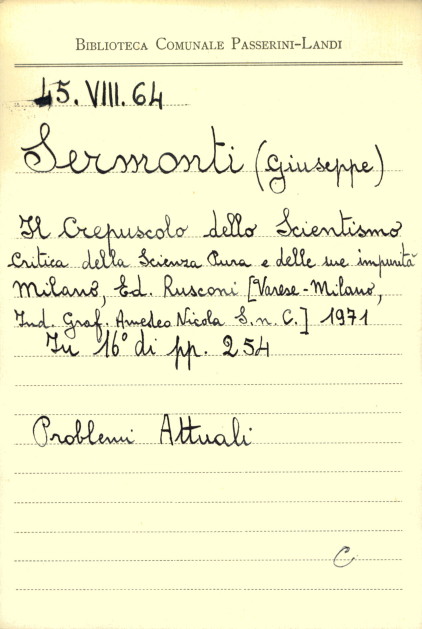 BIBLIOTECA COMUNALE PASSERINI-LANDI
45.VIII.64
Sermonti (Giuseppe)
Il Crepuscolo dello Scientismo
Critica della Scienza Pura e delle sue impurità
Milano, Ed. Rusconi [Varese-Milano,
Ind. Graf. Amedeo Nicola S.n.C.] 1971
In 16° di pp. 254
Problemi Attuali
C